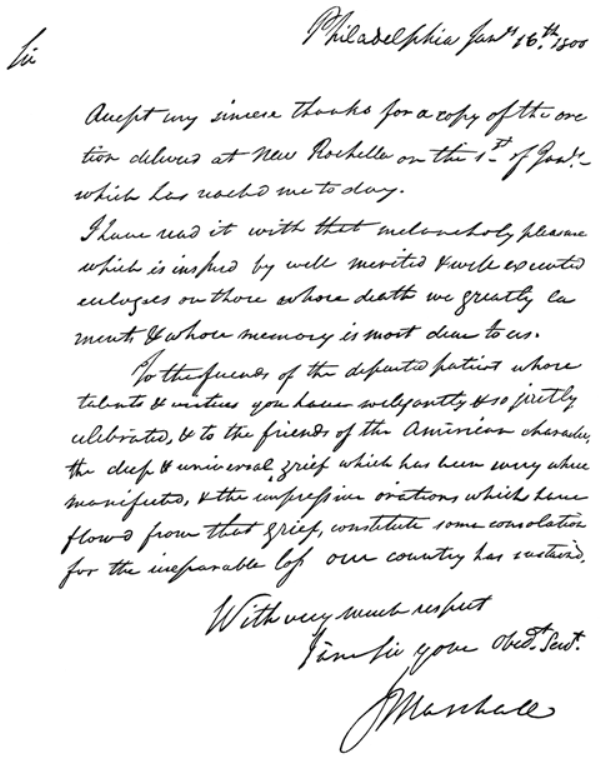 Philadelphia Jany 16.th 1800
Sir
Accept my sincere thanks for a copy of the ora
tion deliverd at New Rochelle on the 1st of Jany.
which has reachd me to day.
I have read it with that melancholy pleasure
which is inspired by well merited & well executed
eulogies on those whose death we greatly la
ment & whose memory is most dear to us.
To the friends of the departed patriot whose
talents & virtues you have so elegantly & so justly
celebrated, & to the friends of the American character,
the deep & universal grief which has been every where
manifested, & the impressive orations which have
flowd from that grief, constitute some consolation
for the irreparable loss our country has sustaind.
With very much respect
I am Sir your Obedt. Servt.
J Marshall